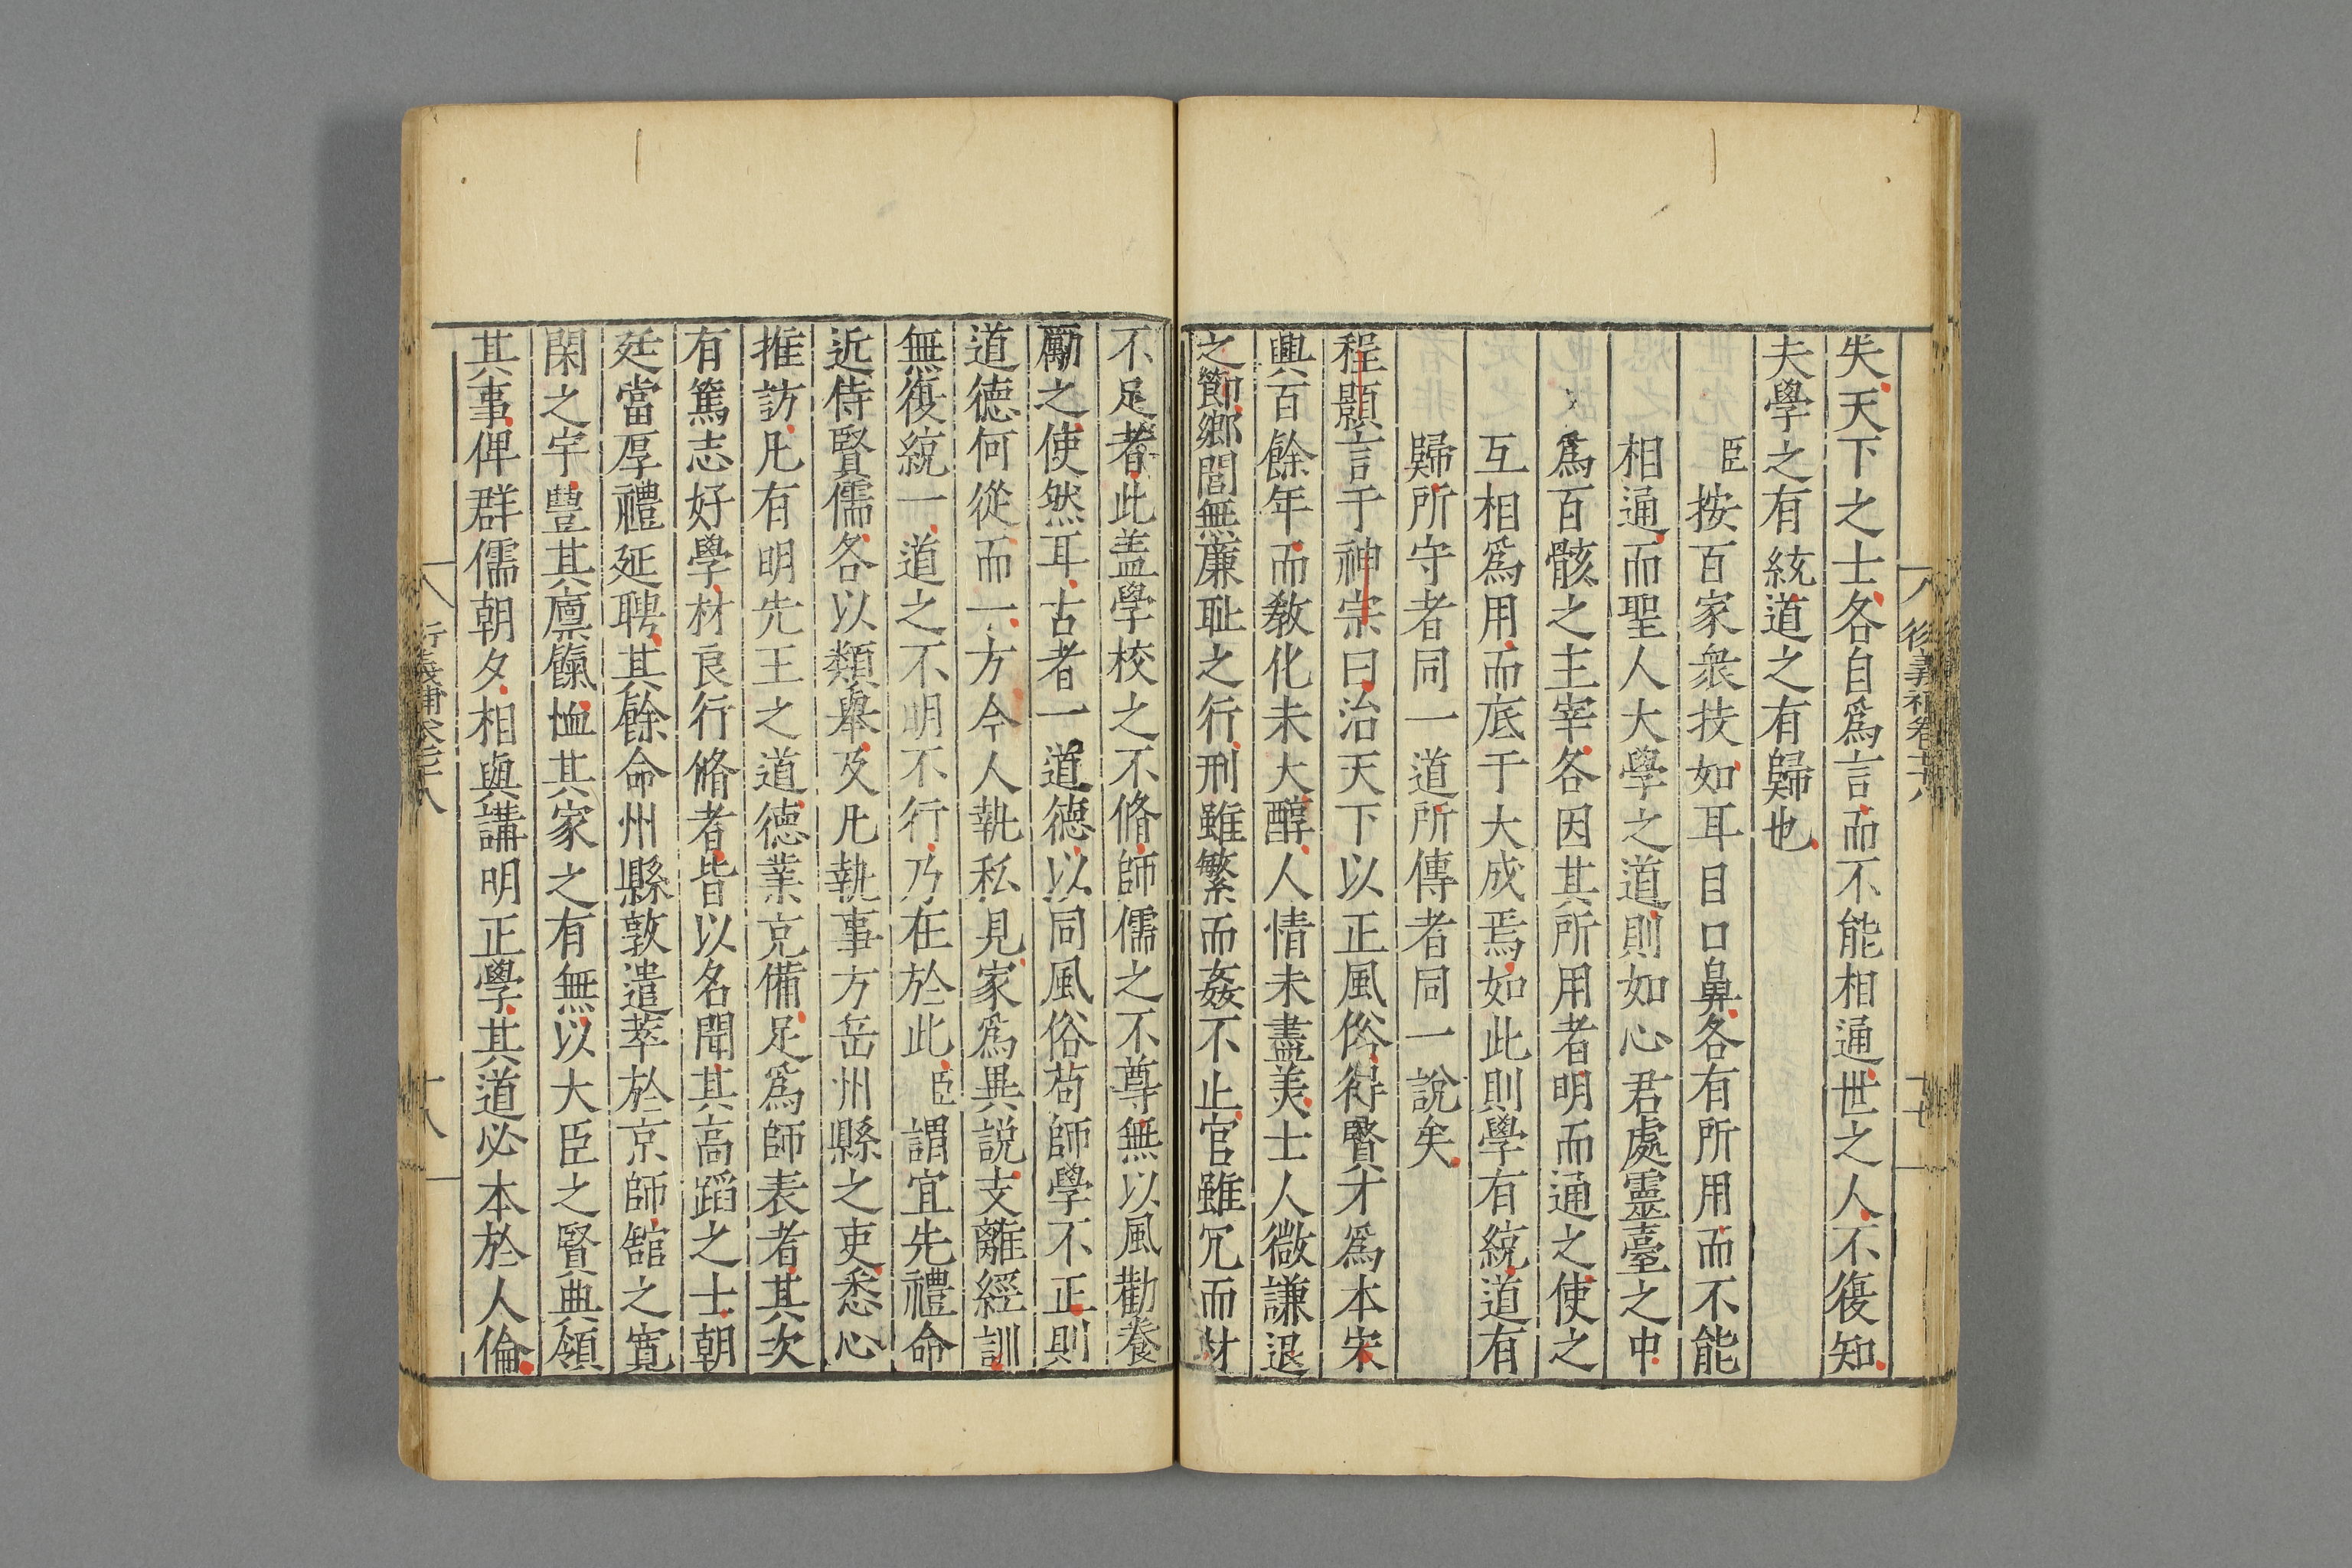 失天下之士各自爲言而不能相通世之人不復知
夫學之有統道之有歸也
臣按百家衆技如耳目口鼻各有所用而不能
相通而聖人大學之道則如心君處靈臺之中
爲百骸之主宰各因其所用者明而通之使之
互相爲用而底于大成焉如此則學有統道有
歸所守者同一道所傳者同一說矣
程顥言于神宗曰治天下以正風俗得賢才爲本宋
興百餘年而敎化未大醇人情未盡美士人微謙退
之節鄉閭無廉耻之行刑雖繁而姦不止官雖冗而材
不足者此盖學校之不脩師儒之不尊無以風勸養
勵之使然耳古者一道德以同風俗苟師學不正則
道德何從而一方今人執私見家爲異説支離經訓
無復統一道之不明不行乃在於此臣謂宜先禮命
近侍賢儒各以類舉及凡執事方岳州縣之吏悉心
推訪凡有明先王之道德業充備足爲師表者其次
有篤志好學材良行脩者皆以名聞其高蹈之士朝
廷當厚禮延聘其餘命州縣敦遣萃於京師舘之寛
閑之宇豐其廪餼恤其家之有無以大臣之賢典領
其事俾群儒朝夕相與講明正學其道必本於人倫